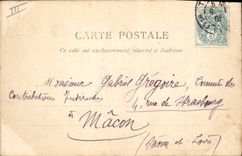 III
CARTE POSTALE
Ce côté est exclusivement réservé à l'adresse
Monsieur Gabriel Grégoire, Commis des
Contributions Indirectes
4, rue de Strasbourg
à Mâcon
(Saône-et-Loire)